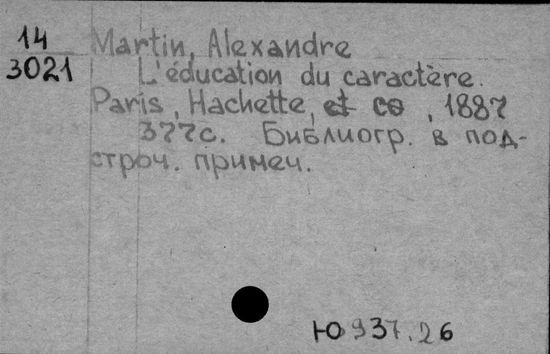 14
3021
Martin, Alexandre
L'éducation du caractère.
Paris, Hachette, et co, 1887
377с. Библиогр. в под-
строч. примеч.
Ю 937.26